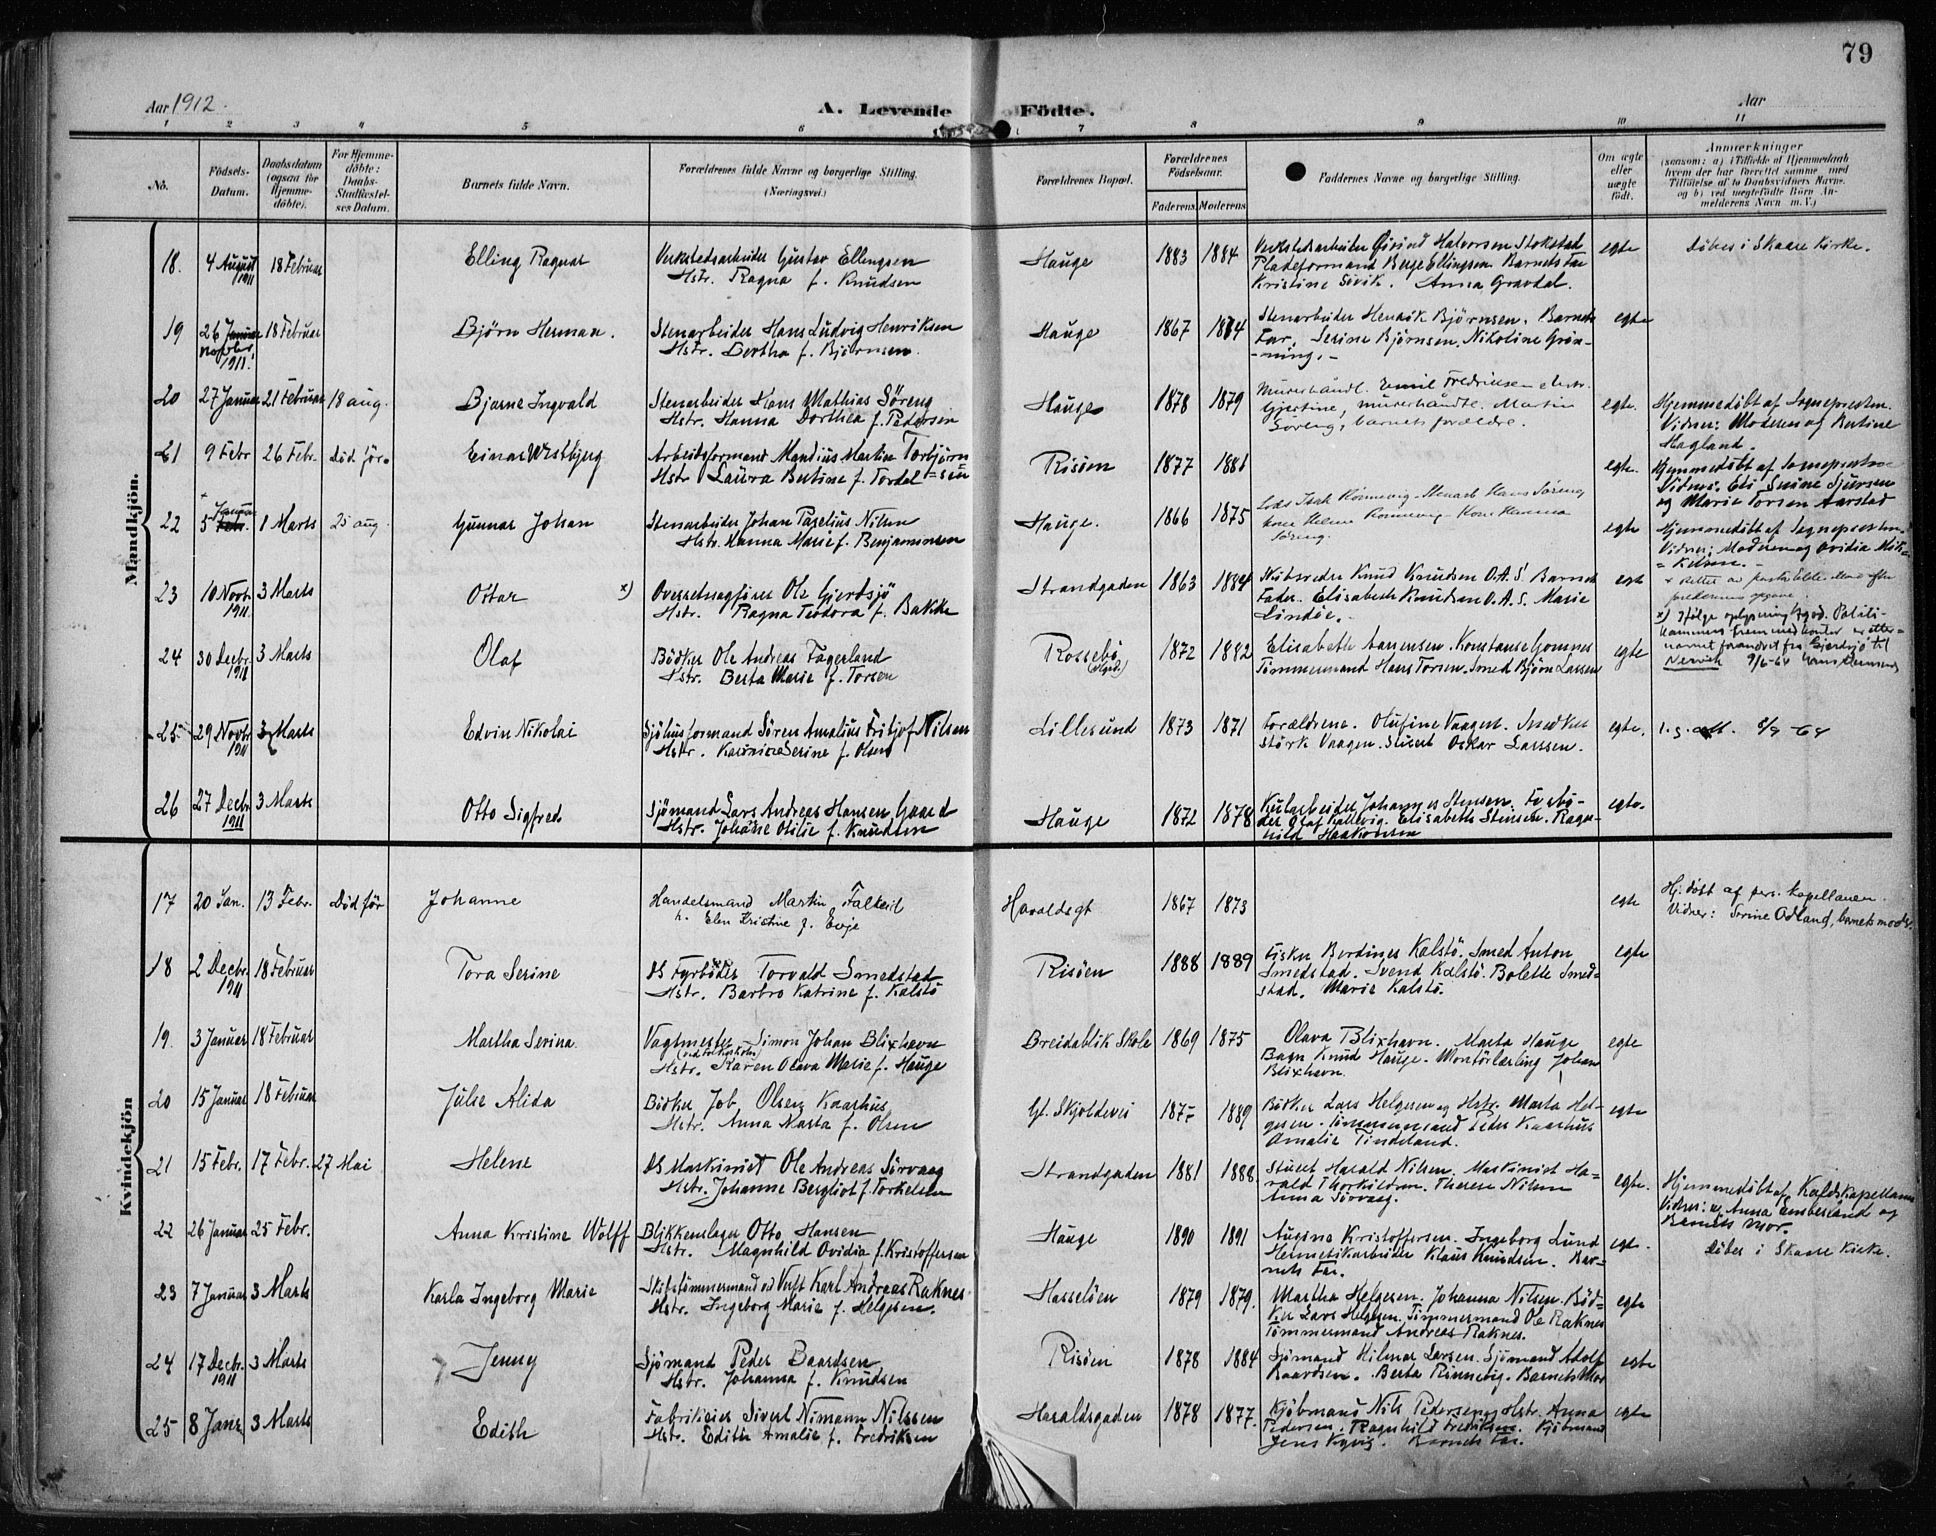 79
Aar 1912.
A. Levende Födte.
Aar
1 2 3 4 5 6 7 8 9 10 11
No.
Födsels-
Datum.
Daabsdatum
(ogsaa for
Hjemme-
döbte).
For Hjemme-
döbte:
Daabs-
Stadfæstel-
ses Datum.
Barnets fulde Navn.
Forældrenes fulde Navne og borgerlige Stilling.
(Næringsvei.)
Forældrenes Bopæl.
Forældrenes
Födselsaar.
Faderens. Moderens.
Faddernes Navne og borgerlige Stilling.
Om ægte
eller
uægte
födt.
Anmærkninger
(saasom: a) i Tilfælde af Hjemmedaab
hvem der har forrettet samme med
Tilföielse af to Daabsvidners Navne.
og b) ved uægtefödte Börn An-
melderens Navn m. V.)
Mandkjön.
18. 4 August 1911 18 Februar Elling Ragnar
Verkstedsarbeider Gustav Ellingsen
Hstr. Ragna f. Knudsen
Hauge 1883 1884
Verkstedsarbeider Øivind Halvorsen Stokstad
Pladeformand Berge Ellingsen. Barnets Far
Kristine Sövik. Anna Gravdal.
egte Döbes i Skaare Kirke.
19 26 Januar novbr. 1911. 18 Februar Björn Herman.
Stenarbeider Hans Ludvig Henriksen
Hstr. Bertha f. Björnsen.
Hauge 1867 1874
Stenarbeider Henrik Björnsen. Barnets
Far, Serine Björnsen. Nikoline Grøn-
-ning.-
egte
20 27 Januar 21 Februar 18 aug. Bjarne Ingvald
Stenarbeider Hans Mathias Söreng
Hstr. Hanna Dorthea f. Pedersen
Hauge 1878 1879
Murerhåndl. Emil Fredriksen Hstr.
Gjertine, murerhåndl. Martin
Soreng, barnets forældre.
egte. Hjemmedöbt af Sognepresten.
Vidner: Moderen og Bertine
Hagland.
21 9 Febr 26 Febr. Död för. Einar Westbjerg
Arbeidsformand Mandius Martin Torbjörn
Hstr Laura Bertine f. Tordal =sen
Risöen 1877 1881
egte. Hjemmedöbt af Sognepresten
Vidnes: Eli Serine Sjursen
og Marie Torsen Aarstad
22 5 Januar Febr. 1 Marts 25 aug. Gunnar Johan
Stenarbeider Johan Paselius Nilsen
Hstr. Hanna Marie f. Benjaminsen
Hauge. 1866 1875
Isak Rönnevig. Stenarb Hans Söreng
kone Helene Rönnevig - Kone Hanna
Söreng.
egte Hjemmedöbt af Sognepresten
Vidner: Moderen og Ovidia Mik=
=kelsen.-
23 10 Novb. 1911. 3 Marts Ottar x)
Overretssagförer Ole Gjerdsjö
Hstr. Ragna Teodora f. Bakke
Strandgaden 1863 1884
Skibsreder Knud Knudsen O.A.S. Barnets
Fader. Elisabeth Knudsen O.A.S. Marie
Lindöe.-
egte
x) Ifölge oplysning
navnet forandret fra Gjerdsjö til
Nervik 9/6-64
24 30 Decbr. 1911 3 Marts Olaf
Bödker Ole Andreas Fagerland
Hstr. Berta Marie f. Torsen
Rossebö 1872 1882
Elisabeth Aanensen. Konstanse Gomnes
Tömmermand Hans Torsen. Smed Björn Larsen
egte
25 29 Novbr 1911 3 Marts Edvin Nikolai
Sjöhusformand Sören Amalius Fritjof Nilsen
Hstr. Serine f. Olsen
Lillesund 1873 1871
Forældrene. Olufine Vaagen. Smed
störk Vaagen. Stuert Oskar Larssen.
egte. 1.g. att. 8/9 -64
26 27 Decbr. 1911 3 Marts Otto Sigfred
Sjömand Lars Andreas Hansen Gaard
Hstr. Johanne Otilie f. Knudsen
Hauge 1872 1878
Kularbeider Johannes Stensen. Fyrbö-
der Olaf Kallevig. Elisabeth Stensen. Ragn-
hild Haakonsen
egte.
Kvindekjön
17 20 Jan. 13 Febr. Död för Johanne
Handelsmand Martin Falkeid
h. Elen Kristine f. Eeje
Haraldsgt 1867 1873
egte Hj. döbt af per. kapellanen.
Vidner: Serine Odland, barnets moder.
18 2 Decbr. 1911 18 Februar Tora Serine
DS Fyrböder Torvald Smedstad
Hstr. Barbro Katrine f. Kalstö
Risöen 1888 1889
Fisker Berdines Kalstö. Smed Anton
Smedstad. Svend Kalstö. Bolette Smed-
stad. Marie Kalstö.
egte
19. 3 Januar 18 Februar Martha Serina.
Vagtmester Simon Johan Blixhavn
(ved folkeskolen)
Hstr. Karen Olava Marie f. Hauge
Breidablik Skole 1869 1875
Olava Blixhavn. Marta Hauge
Bagn Knud Hauge. Montörlærling Johan
Blixhavn.
egte
20 15 Januar 18 Februar Julie Alida
Bödker Job Olsen Kaarhus
Hstr. Anna Marta f. Olsen
Gl. Skjoldevei 1877 1889
Bödker Lars Helgesen og Hstr. Marta Hel-
gesen. Tömmermand Peder Kaarhus
Amalie Tindeland.
egte
21 15 Febr. 17 Febr. 27 Mai Helene
DS Maskinist Ole Andreas Sörvaag
Hstr. Johanne Bergliot f. Torkelsen
Strandgaden 1881 1888.
Stuert Harald Nilsen. Maskinist Ha-
rald Thorkildsen. Therese Nilsen
Anna Sörvaag.
egte. Hjemmedöbt af Kaldskapellanen
Vidner: Anna Emberland og
Barnets Mor.
22 26 Januar 25 Febr. Anna Kristine Wolff
Blikkenslager Otto Hansen
Hstr. Magnhild Ovidia f. Kristoffersen
Hauge 1890 1891
Kristoffersen. Ingeborg Lund
Hermetikarbeider Klaus Knudsen. Bar-
nets Far.
egte. Döbes i Skaare Kirke.
23 7 Januar 3 Marts Karla Ingeborg Marie
Skibstömmermand ved Verft Karl Andreas Raknes
Hstr. Ingeborg Marie f. Helgesen.
Hasselöen 1879 1879.
Martha Helgesen. Johanna Nilsen. Böd-
ker Lars Helgesen. Tömmermand Ole Raknes
Tömmermand Andreas Raknes.
egte
24 17 Decbr. 1911 3 Marts Jenny
Sjömand Peder Baardsen
Hstr. Johanna f. Knudsen
Risöen 1878 1884
Sjömand Hilmar Larsen. Sjömand Adolf
Baardsen. Berta Rinnevig. Barnets Mor
egte
25 8 Janr 3 Marts Edith
Fabrikeier Sivert Nimann Nilssen
Hstr. Edith Amalie f. Fredriksen
Haraldsgaden 1878 1877.
Kjöbmand Nils Pedersen og Hstr. Anna
Pedersen. Ragnhild Fredriksen. Kjöbmand
Jens Kyvig. Barnets Far.
egte